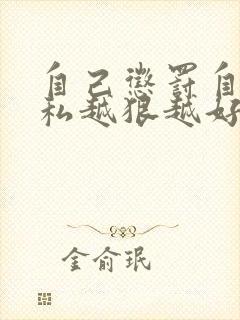 自己惩罚自
私越狠越好
金俞珉